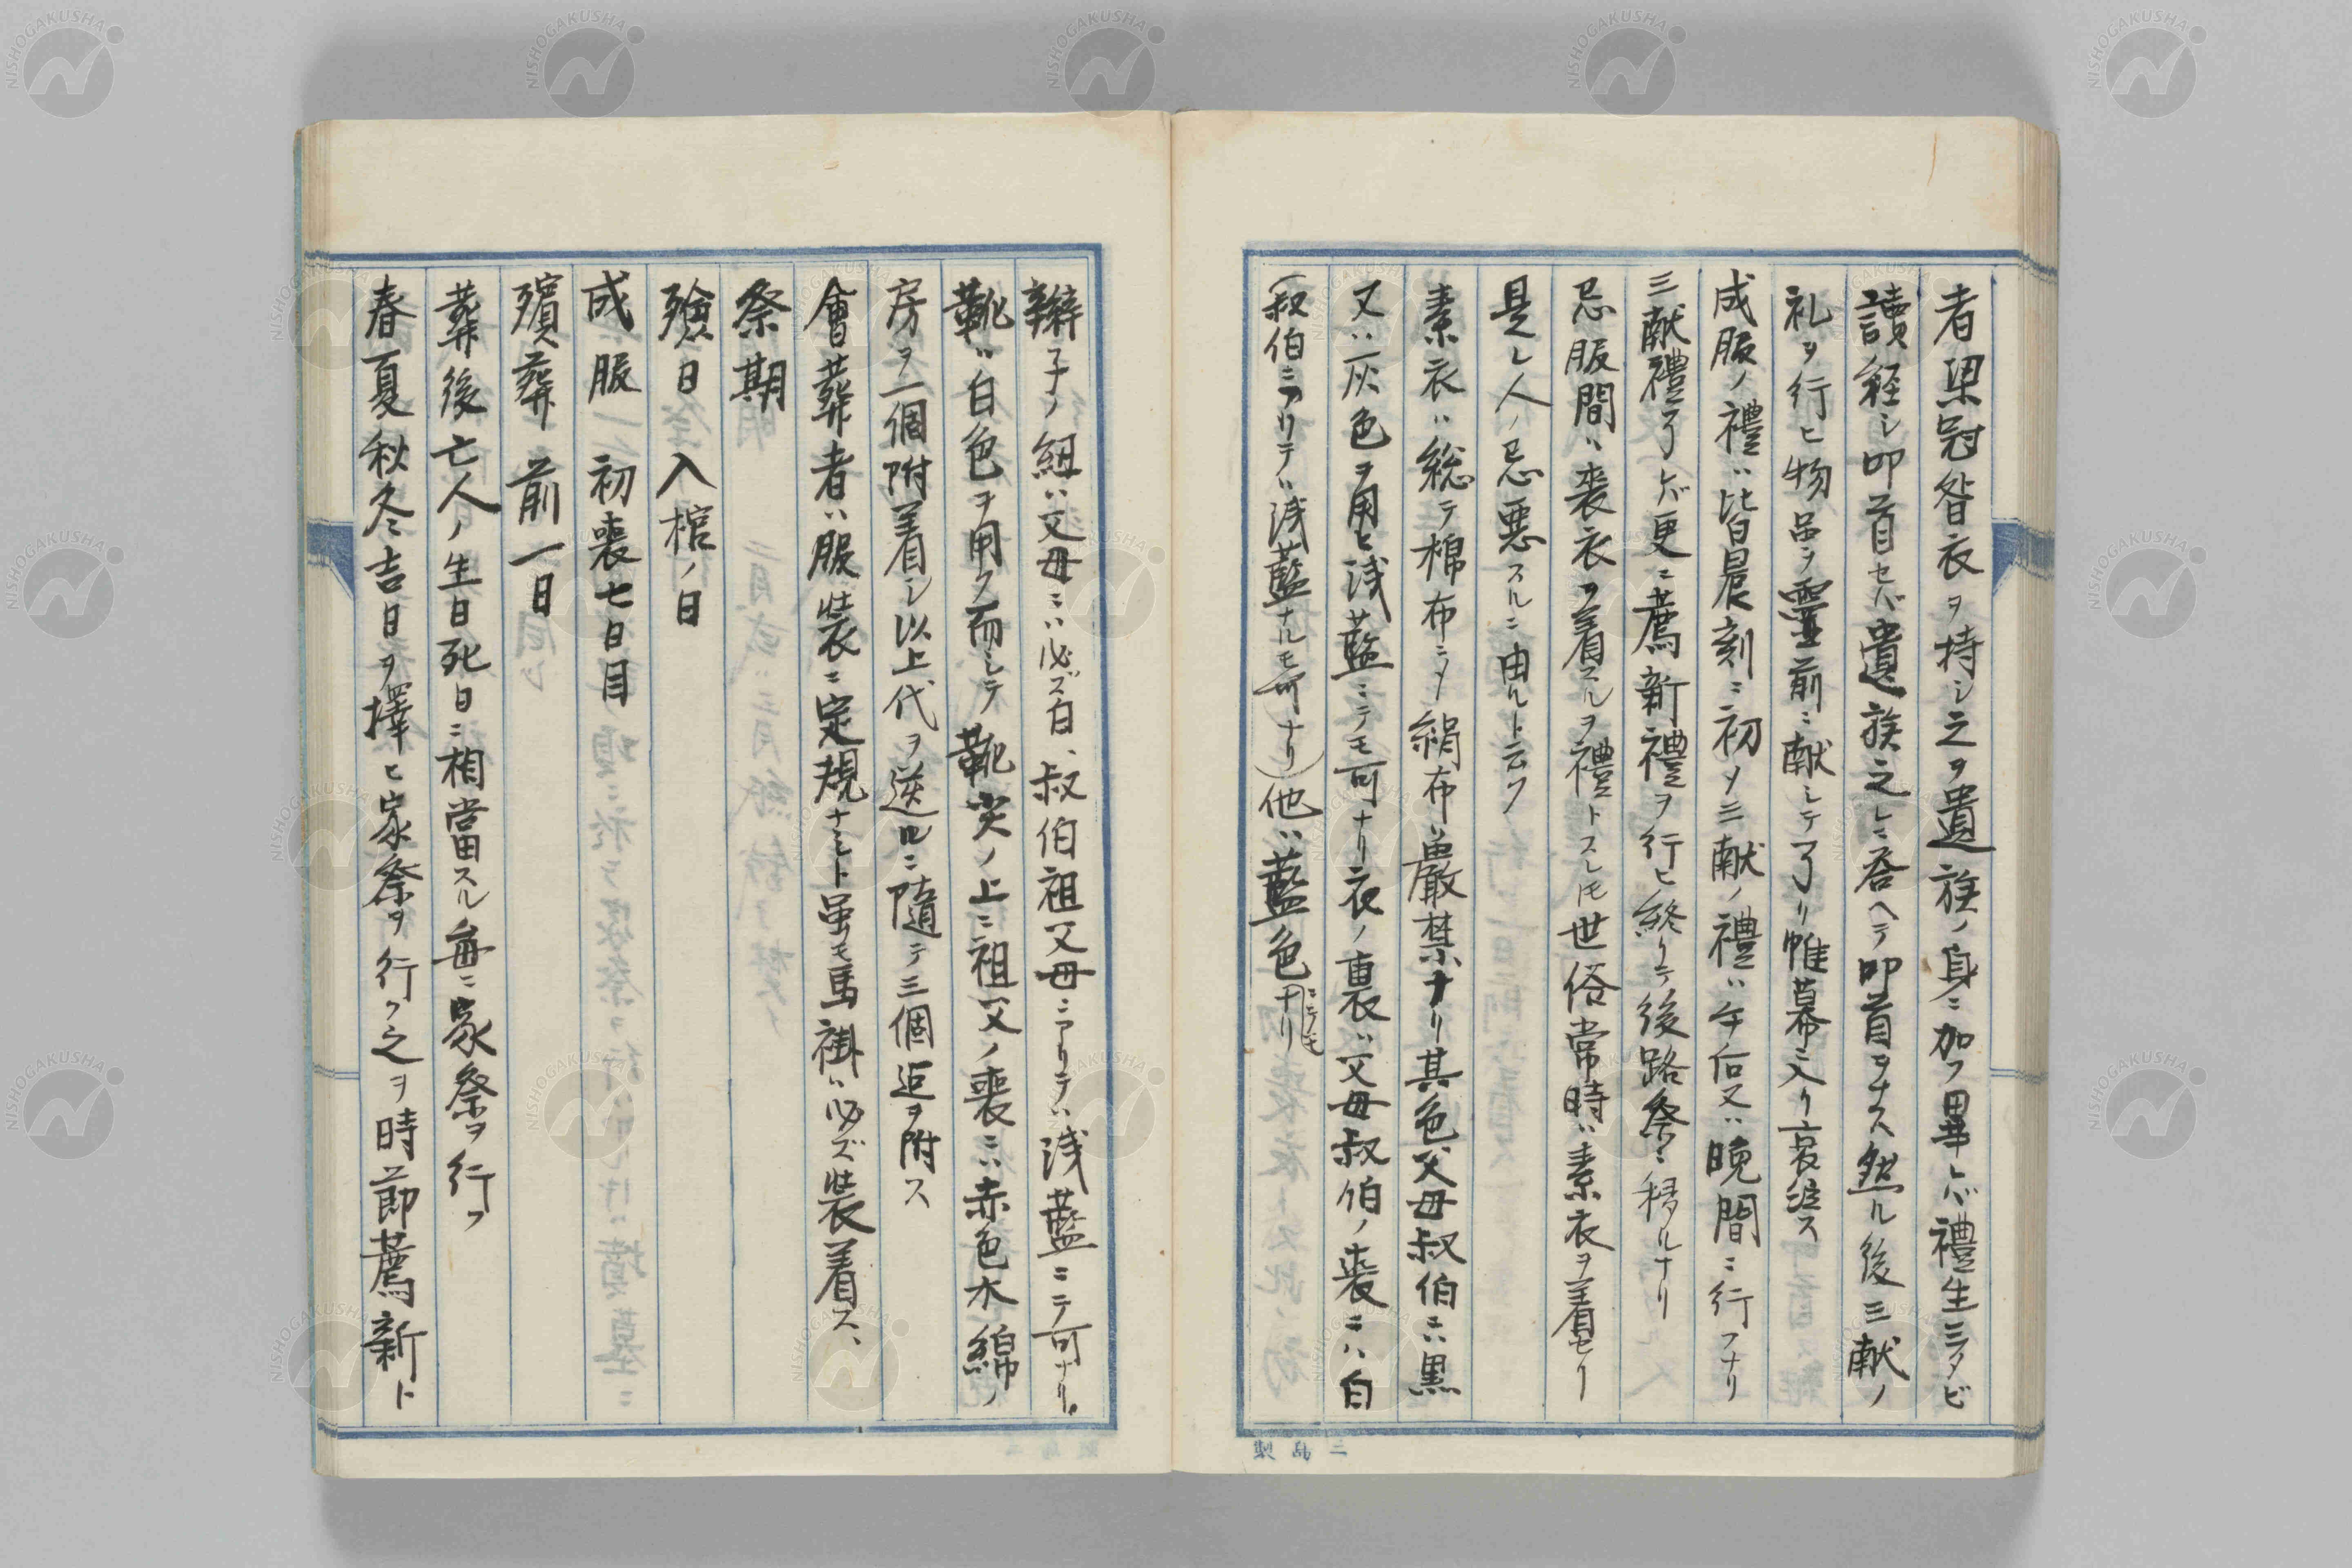 者梁冠督衣ヲ持シ之ヲ遺族ノ身ニ加フ畢レバ禮生三タビ
讀経シ叩首セバ遺族之レニ答ヘテ叩首ヲナス然ル後三献ノ
礼ヲ行ヒ物品ヲ霊前ニ献シテ了リ帷幕ニ入リ哀泣ス
成服ノ禮ハ皆晨刻ニ初メ三献ノ禮ハ午后又ハ晩間ニ行フナリ
三献禮了レバ更ニ薦新禮ヲ行ヒ終リテ後路祭ニ移ルナリ
忌服間ハ喪衣ヲ着スルヲ禮トスレ𪜈世俗常時ハ素衣ヲ着セリ
是レ人ノ忌悪スルニ由ルト云フ
素衣ハ総テ棉布ニメ絹布ハ嚴禁ナリ其色父母叔伯ニハ黒
又ハ灰色ヲ用ヒ浅藍ニテモ可ナリ衣ノ裏ハ父母叔伯ノ喪ニハ白
(叔伯ニアリテハ浅藍ナルモ可ナリ)他ハ藍色ニテモナリ
辮子ノ紐ハ父母ニハ必ズ白、叔伯祖父母ニアリテハ浅藍ニテ可ナリ。
靴ハ白色ヲ用フ而シテ靴尖ノ上ニ祖父ノ喪ニハ赤色木綿ノ
房ヲ一個附着シ以上代ヲ逆ルニ隨テ三個迄ヲ附ス
會葬者ハ服裝ニ定規ナシト虽モ馬褂ハ必ズ裝着ス、
祭期
殮日 入棺ノ日
成服 初喪七日目
殯葬 前一日
葬後亡人ノ生日死日ニ相當スル毎ニ家祭ヲ行フ
春夏秋冬吉日ヲ擇ヒ家祭ヲ行フ之ヲ時節薦新ト
三島製
NISHOGAKUSHA